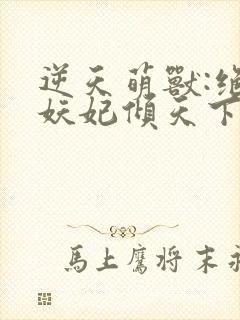 逆天萌獸:絕
妖妃傾天下
馬上鷹将末